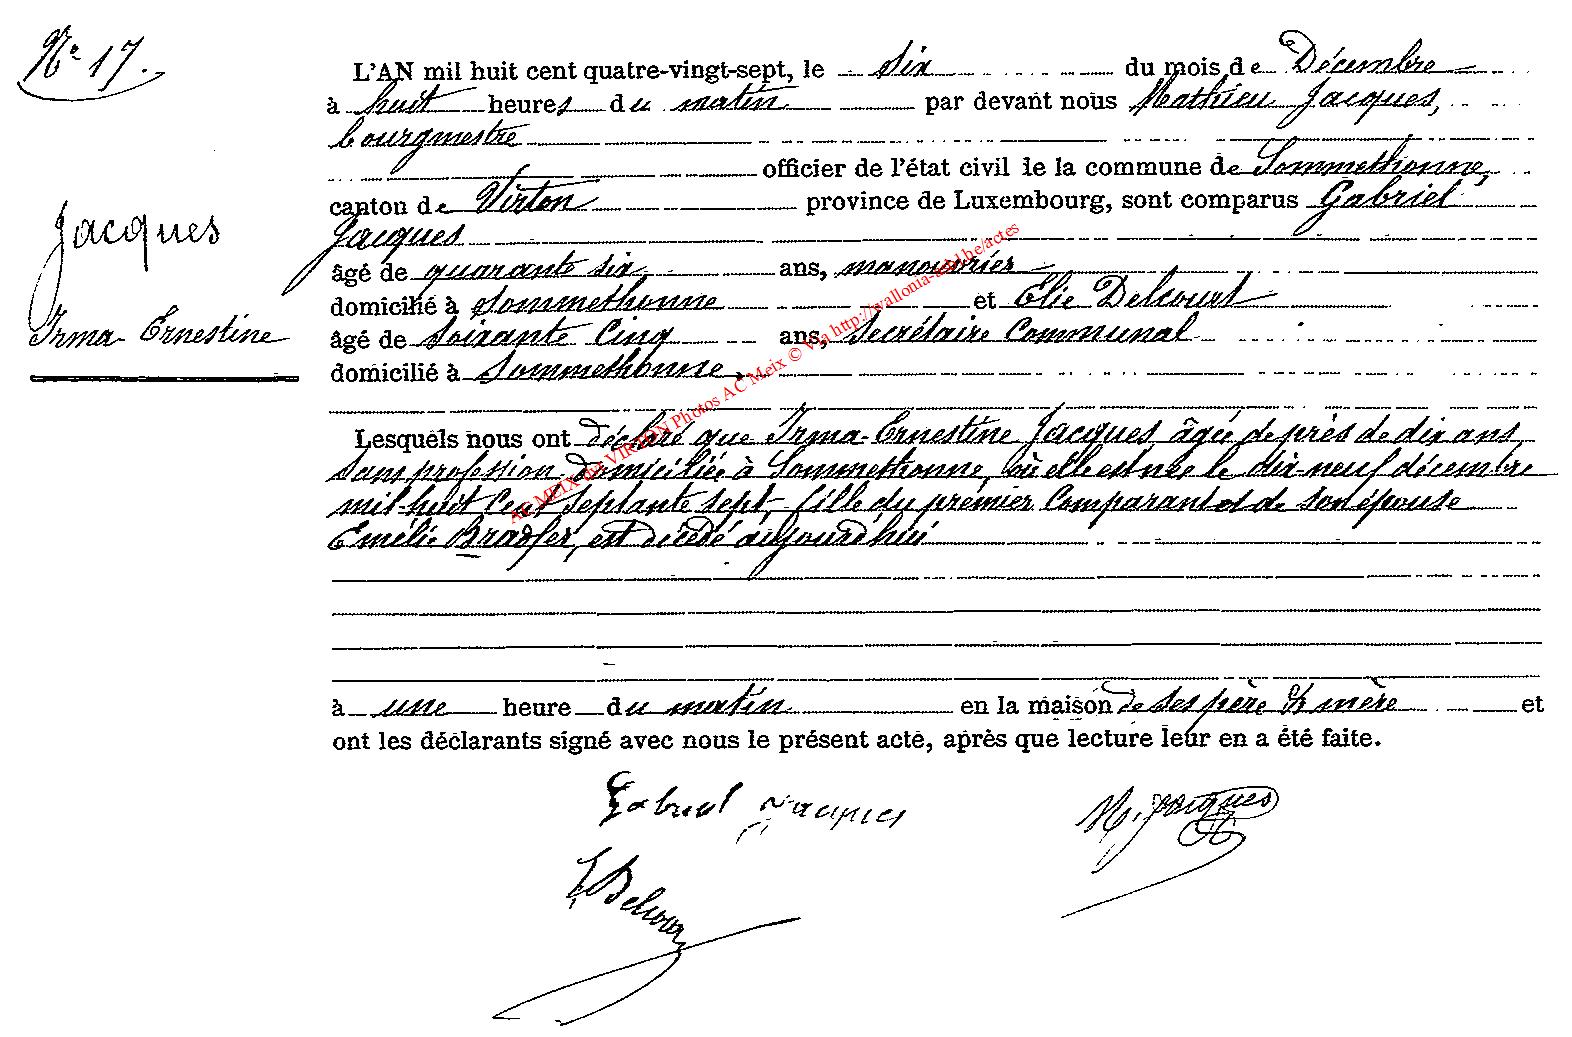 N° 17.
L'AN mil huit cent quatre-vingt-sept, le six du mois de Décembre
à huit heures du matin par devant nous Mathieu Jacques,
bourgmestre
officier de l'état civil de la commune de Sommethonne,
canton de Virton province de Luxembourg, sont comparus Gabriel
Jacques
Jacques
âgé de quarante six ans, manouvrier
domicilié à Sommethonne et Elie Delcourt
Irma Ernestine
âgé de Soixante Cinq ans, Secrétaire Communal
domicilié à Sommethonne.
AC MEIX du VIRTON Photos AC Meix © Via http://wallonia-asbl.be/actes
Lesquels nous ont déclaré que Irma-Ernestine Jacques, âgée de près de dix ans,
sans profession, domiciliée à Sommethonne, où elle est née le dix-neuf décembre
mil-huit Cent Septante sept, fille du premier Comparant et de son épouse
Emélie Bradfer, est décédé aujourd'hui
à une heure du matin en la maison de ses père & mère et
ont les déclarants signé avec nous le présent acte, après que lecture leur en a été faite.
Gabriel Jacques
M. Jacques
E Delcour